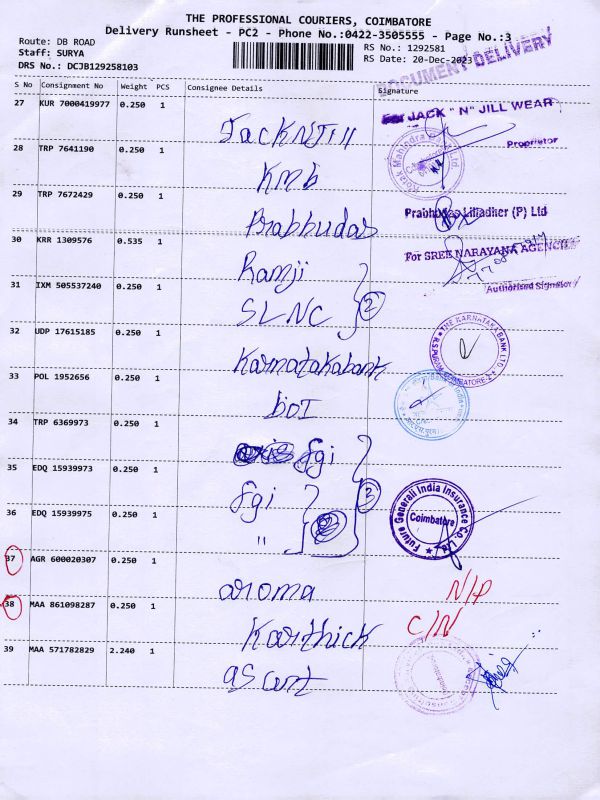 THE PROFESSIONAL COURIERS, COIMBATORE
Delivery Runsheet - PC2 - Phone No.:0422-3505555 - Page No.:3
Route: DB ROAD
Staff: SURYA
DRS No.: DCJB129258103
RS No.: 1292581
RS Date: 20-Dec-2023
DOCUMENT DELIVERY
S No Consignment No Weight PCS Consignee Details Signature
27 KUR 7000419977 0.250 1 JackNJill
For JACK "N" JILL WEAR
Proprietor
28 TRP 7641190 0.250 1 Kmb
29 TRP 7672429 0.250 1 Prabhudas
Prabhudas Lilladher (P) Ltd
30 KRR 1309576 0.535 1 Ramji
For SREE NARAYANA AGENCIES
Authorised Signatory
31 IXM 505537240 0.250 1 SLNC 2
32 UDP 17615185 0.250 1 Karnatakabank
THE KARNATAKA BANK LTD
COIMBATORE-2
33 POL 1952656 0.250 1 boI
34 TRP 6369973 0.250 1 fgi
35 EDQ 15939973 0.250 1 fgi 3
36 EDQ 15939975 0.250 1 "
Future Generali India Insurance Co. Ltd
Coimbatore
37 AGR 600020307 0.250 1 aroma N/P
38 MAA 861098287 0.250 1 Karthick C/N
39 MAA 571782829 2.240 1 ascent